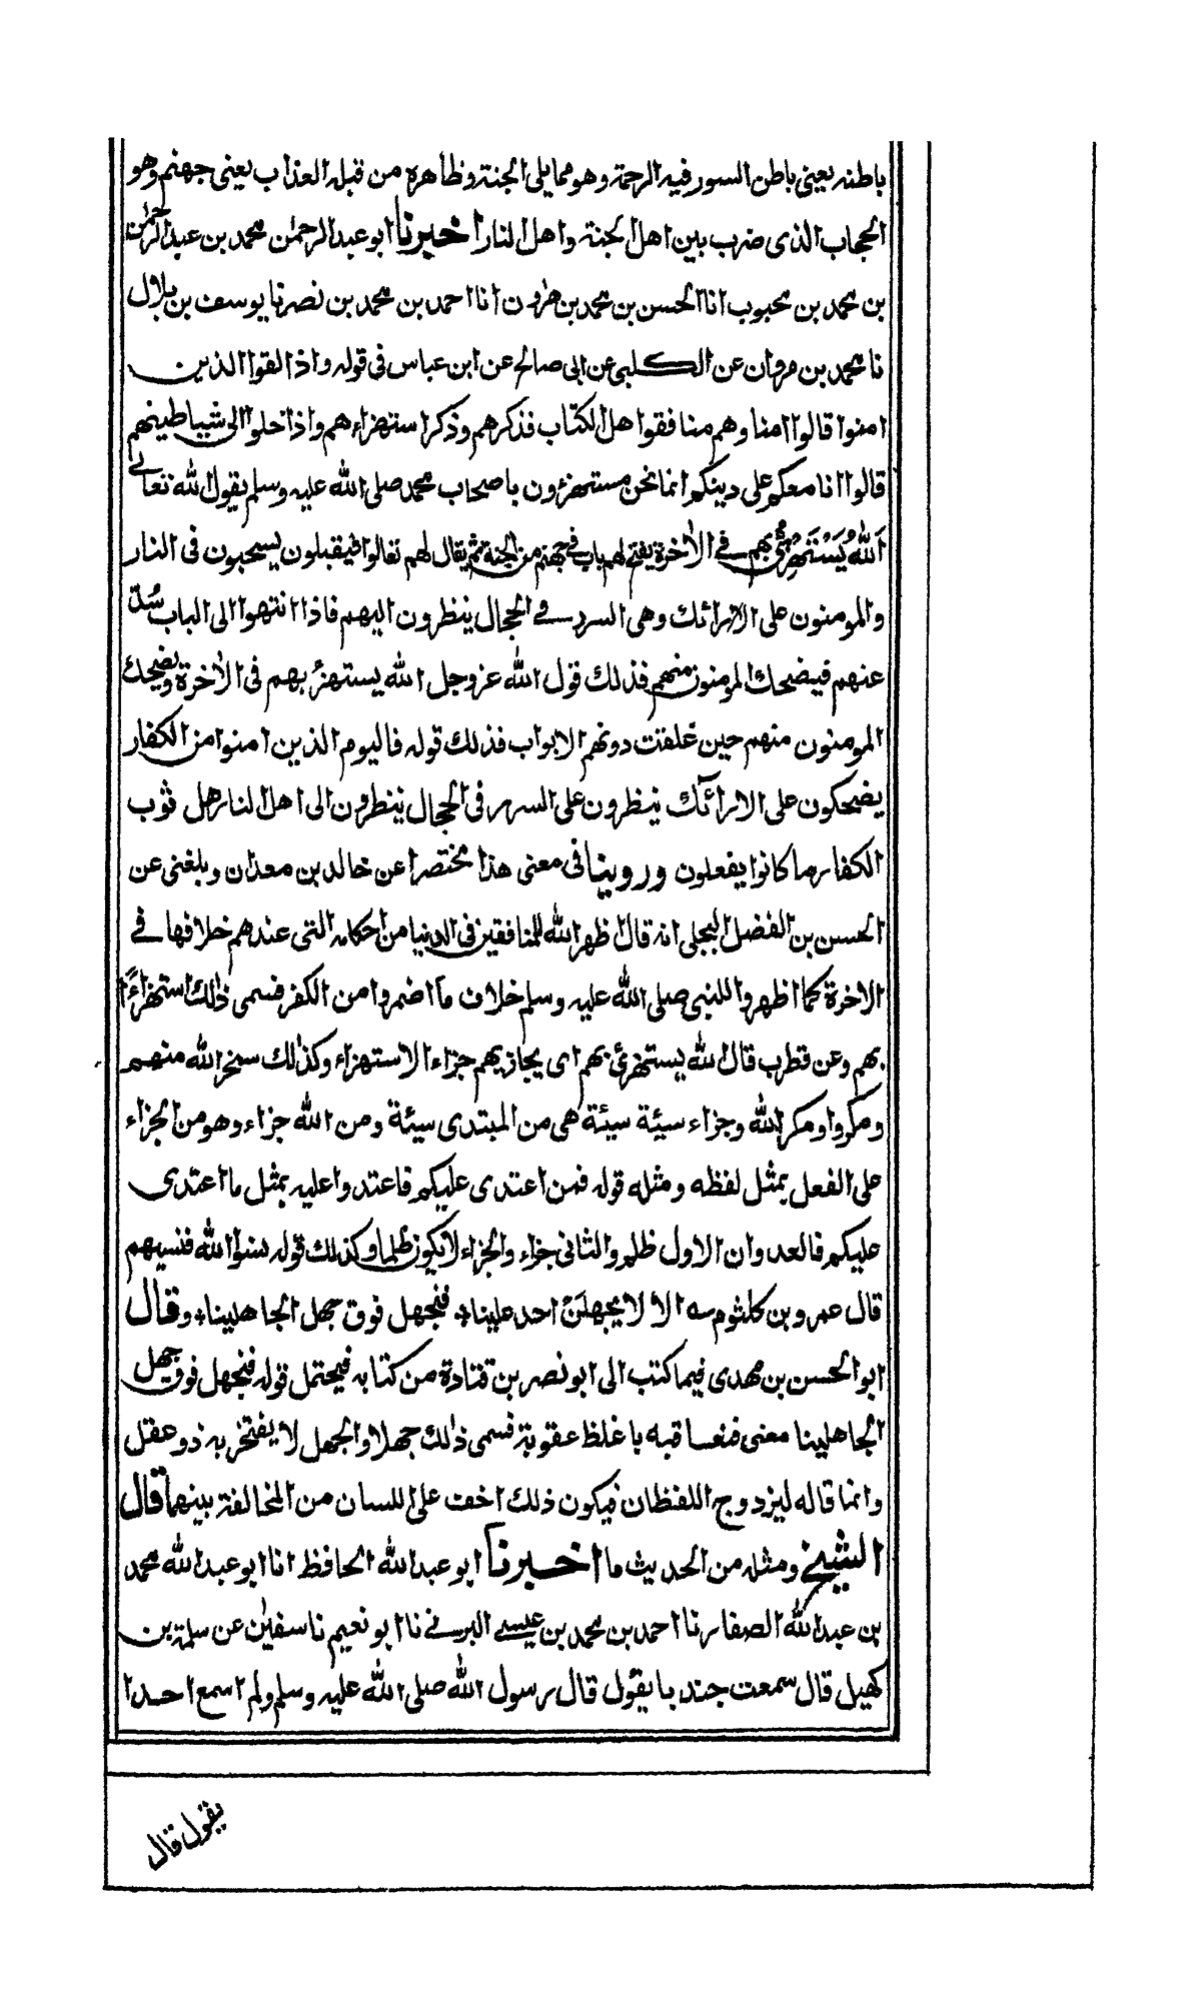 باطنه يعنى باطن السور فيه الرحمة وهو مما يلى الجنة وظاهره من قبله العذاب يعنى جهنم وهو
الحجاب الذى ضرب بين اهل الجنة واهل النار اخبرنا ابو عبد الرحمٰن محمد بن عبد الرحمٰن
بن محمد بن محبوب انا الحسن بن محمد بن هٰرون انا احمد بن محمد بن نصر نا يوسف بن بلال
نا محمد بن مروان عن الكلبى عن ابى صالح عن ابن عباس فى قوله واذا لقوا الذين
امنوا قالوا امنا وهم منافقوا هل الكتاب فذكرهم وذكر استهزاءهم واذا خلوا الى شياطينهم
قالوا انا معكم على دينكم انما نحن مستهزؤن باصحاب محمد صلى الله عليه وسلم يقول الله تعالى
اَللهُ يَسْتَهْزِئُ بهم فى الاٰخرة يفتح لهم باب فى جهنم من الجنة ثم يقال لهم تعالوا فيقبلون يسحبون فى النار
والمومنون على الارائك وهى السرر فى الحجال ينظرون اليهم فاذا انتهوا الى الباب سُدّ
عنهم فيضحك المومنون منهم فذلك قول الله عز وجل الله يستهزئ بهم فى الاٰخرة ويضحك
المومنون منهم حين غلقت دونهم الابواب فذلك قوله فاليوم الذين امنوا من الكفار
يضحكون على الارائك ينظرون على السرر فى الحجال ينظرون الى اهل النار هل ثوب
الكفار ما كانوا يفعلون وروينا فى معنى هذا مختصرا عن خالد بن معدان وبلغنى عن
الحسن بن الفضل البجلى انه قال اظهر الله للمنافقين فى الدنيا من احكامه التى عندهم خلافها فى
الاخرة كما اظهروا للنبى صلى الله عليه وسلم خلاف ما اضمروا من الكفر فسمى ذٰلك استهزاءً
بهم وعن قطرب قال الله يستهزئ بهم اى يجازيهم جزاء الاستهزاء وكذٰلك سخر الله منهم
ومكروا ومكر الله وجزاء سيئة سيئة هى من المبتدى سيئة ومن الله جزاء وهو من الجزاء
على الفعل بمثل لفظه ومثله قوله فمن اعتدى عليكم فاعتدوا عليه بمثل ما اعتدى
عليكم فالعدوان الاول ظلم والثانى جزاء والجزاء لا يكون ظلما وكذلك قوله نسوا الله فنسيهم
قال عمرو بن كلثوم سه الا لا يجهلن احد علينا + فنجهل فوق جهل الجاهلينا + وقال
ابو الحسن بن مهدى فيما كتب الى ابو نصر بن قتادة من كتابه فيحتمل قوله فنجهل فوق جهل
الجاهلينا معنى فنعاقبه باغلظ عقوبة فسمى ذٰلك جهلا والجهل لا يفتخر به ذو عقل
وانما قاله ليزدوج اللفظان فيكون ذلك اخف على اللسان من المخالفة بينهما قال
الشيخ ومثله من الحديث ما اخبرنا ابو عبد الله الحافظ انا ابو عبد الله محمد
بن عبد الله الصفار نا احمد بن محمد بن عيسى البرتى نا ابو نعيم نا سفيٰن عن سلمة بن
كهيل قال سمعت جندبا يقول قال رسول الله صلى الله عليه وسلم ولم اسمع احدا
يقول قال